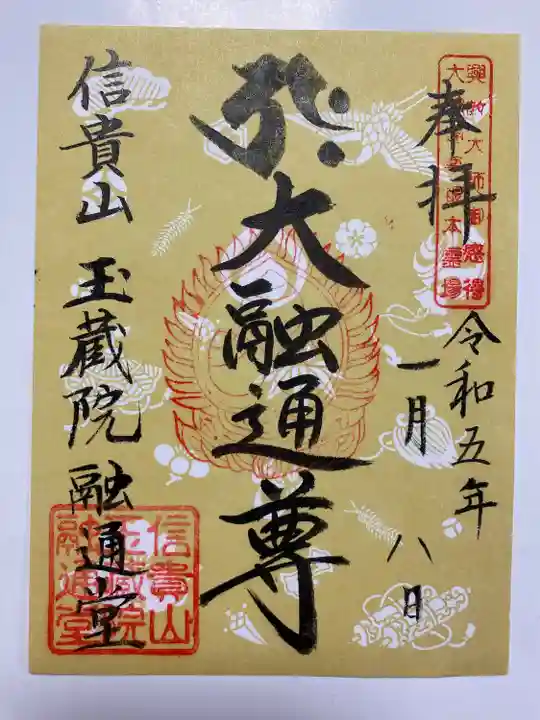 奉拝
令和五年
一月八日
大融通尊
信貴山 玉蔵院 融通堂
信貴山
玉蔵院
融通堂